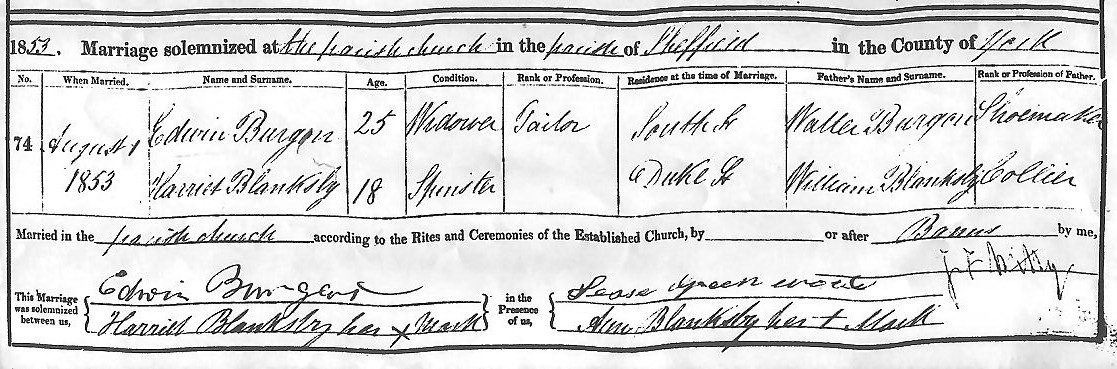 1853. Marriage solemnized at the parish church in the parish of Sheffield in the County of York
No. When Married. Name and Surname. Age. Condition. Rank or Profession. Residence at the time of Marriage. Father's Name and Surname. Rank or Profession of Father.
74 August 1 Edwin Burgon 25 Widower Tailor South St Walter Burgon Shoemaker
1853 Harriet Blanksby 18 Spinster Duke St William Blanksby Collier
Married in the parish church according to the Rites and Ceremonies of the Established Church, by or after Banns by me,
This Marriage was solemnized between us, Edwin Burgon in the Presence of us,
Harriet Blanksby her x Mark Ann Blanksby her + Mark